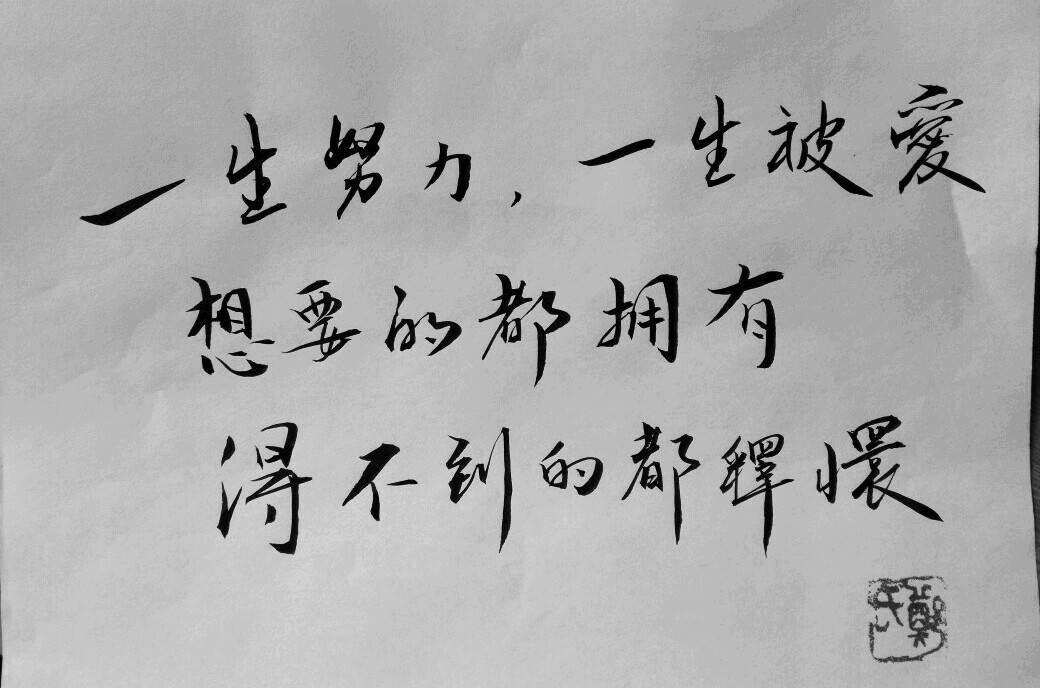 一生努力，一生被愛
想要的都拥有
得不到的都釋懷
鄭氏